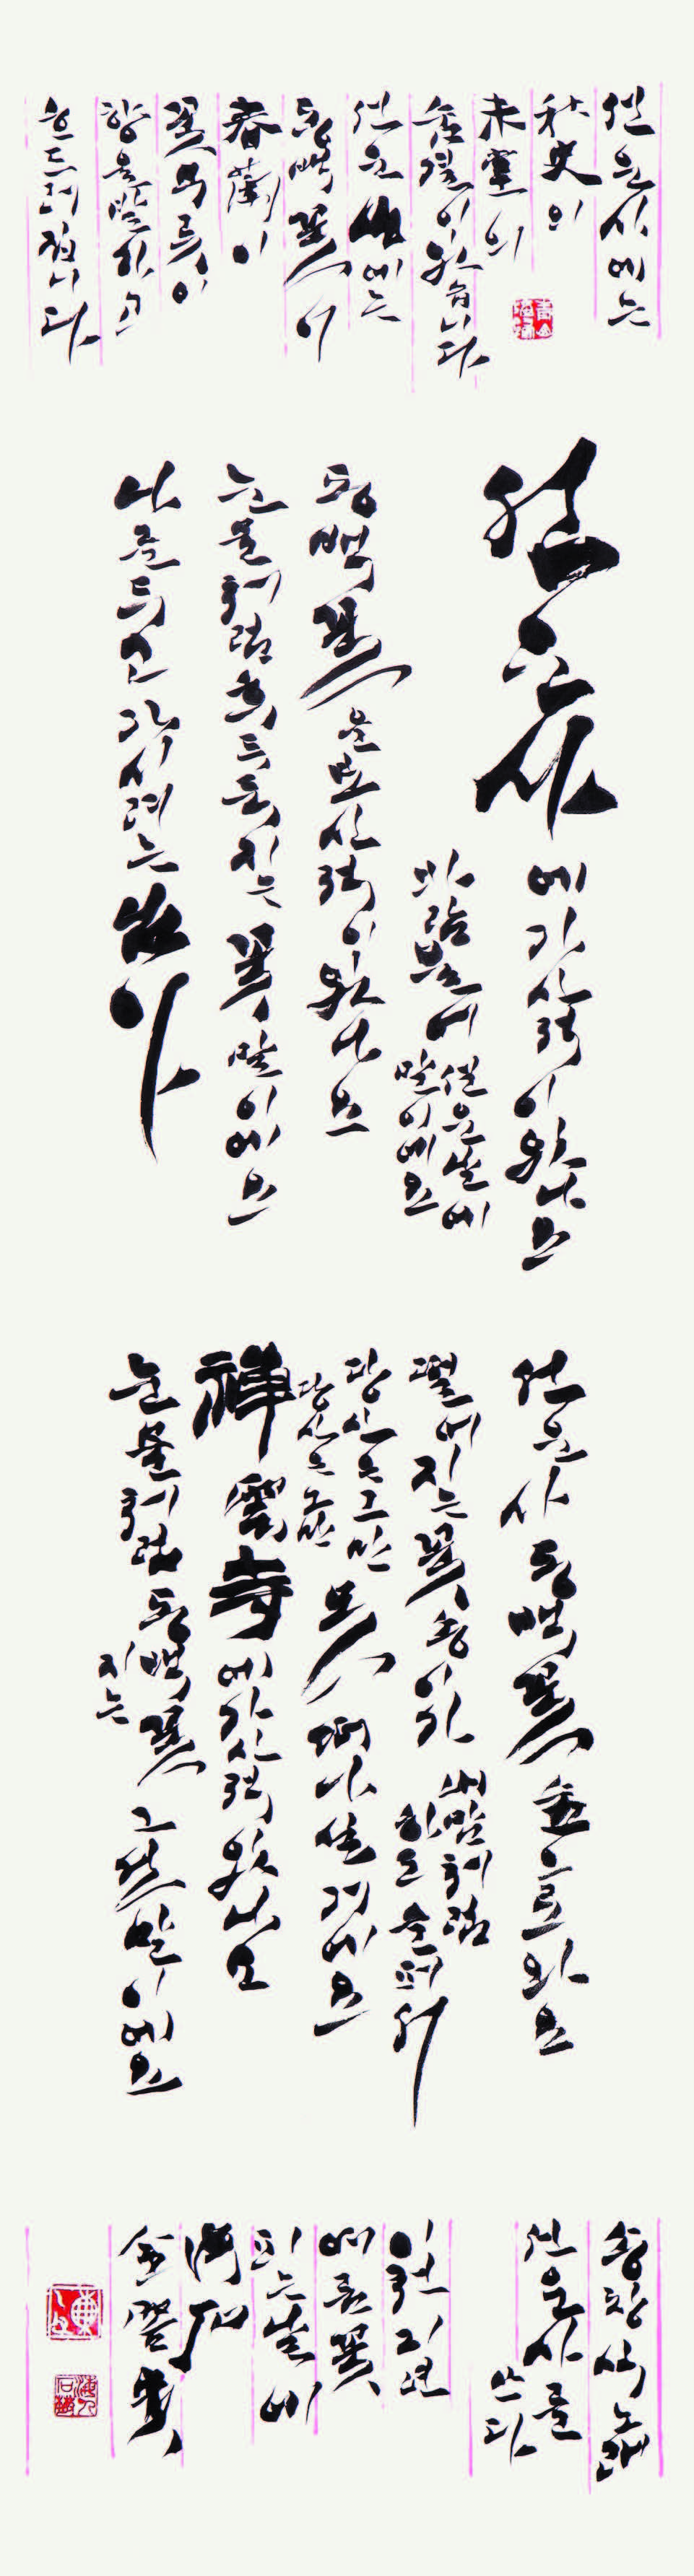 선운사에는
秋史의
未堂의
숨결이 있습니다
선운山에는
동백꽃이
春蘭이
꽃무릇이
향을 발하고
선운사
에 가신 적이 있나요
바람불어 설운날에
말이에요
동백꽃을 보신 적이 있나요
눈물처럼 후두둑 지는 꽃 말이에요
나를 두고 가시려는 님아
선운사 동백꽃 숲으로 와요
떨어지는 꽃송이가 내맘처럼
하도 슬퍼서
당신은 그만
당신은 그만 못 떠나실거예요
禪雲寺에 가신적 있나요
눈물처럼 동백꽃
지는 그곳 말이에요
송창식 노래
선운사를
쓰다
여름꽃
피는날에
海石